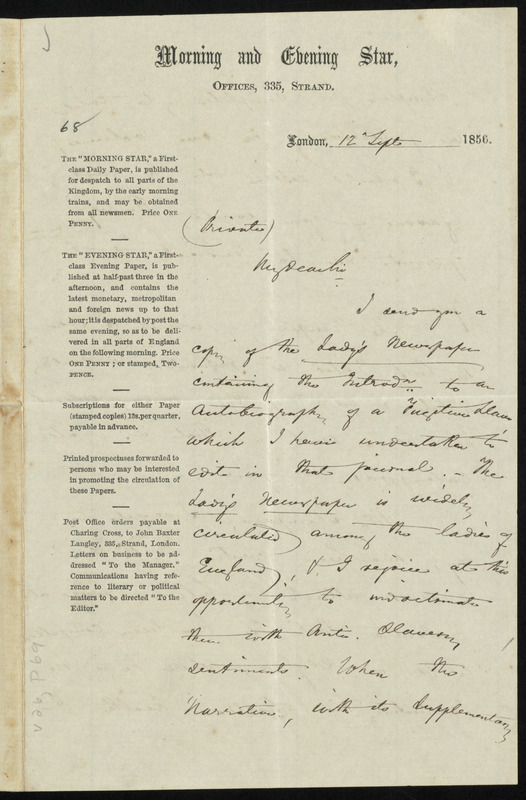 Morning and Evening Star,
OFFICES, 335, STRAND.
68
London, 12th Septr 1856.
THE "MORNING STAR," a First-
class Daily Paper, is published
for despatch to all parts of the
Kingdom, by the early morning
trains, and may be obtained
from all newsmen. Price ONE
PENNY.
THE "EVENING STAR," a First-
class Evening Paper, is pub-
lished at half-past three in the
afternoon, and contains the
latest monetary, metropolitan
and foreign news up to that
hour; it is despatched by post the
same evening, so as to be deli-
vered in all parts of England
on the following morning. Price
ONE PENNY; or stamped, TWO-
PENCE.
Subscriptions for either Paper
(stamped copies) 13s. per quarter,
payable in advance.
Printed prospectuses forwarded to
persons who may be interested
in promoting the circulation of
these Papers.
Post Office orders payable at
Charing Cross, to John Baxter
Langley, 335, Strand, London.
Letters on business to be ad-
dressed "To the Manager."
Communications having refe-
rence to literary or political
matters to be directed "To the
Editor."
(Private)
My dear Sir
I send you a
copy of the Lady's Newspaper
containing the Introdn to an
Autobiography of a Fugitive Slave,
which I have undertaken to
edit in that journal. - The
Lady's Newspaper is widely
circulated among the ladies of
England, & I rejoice at this
opportunity to indoctrinate
them with Anti-Slavery
sentiments. When the
Narrative, with its Supplementary